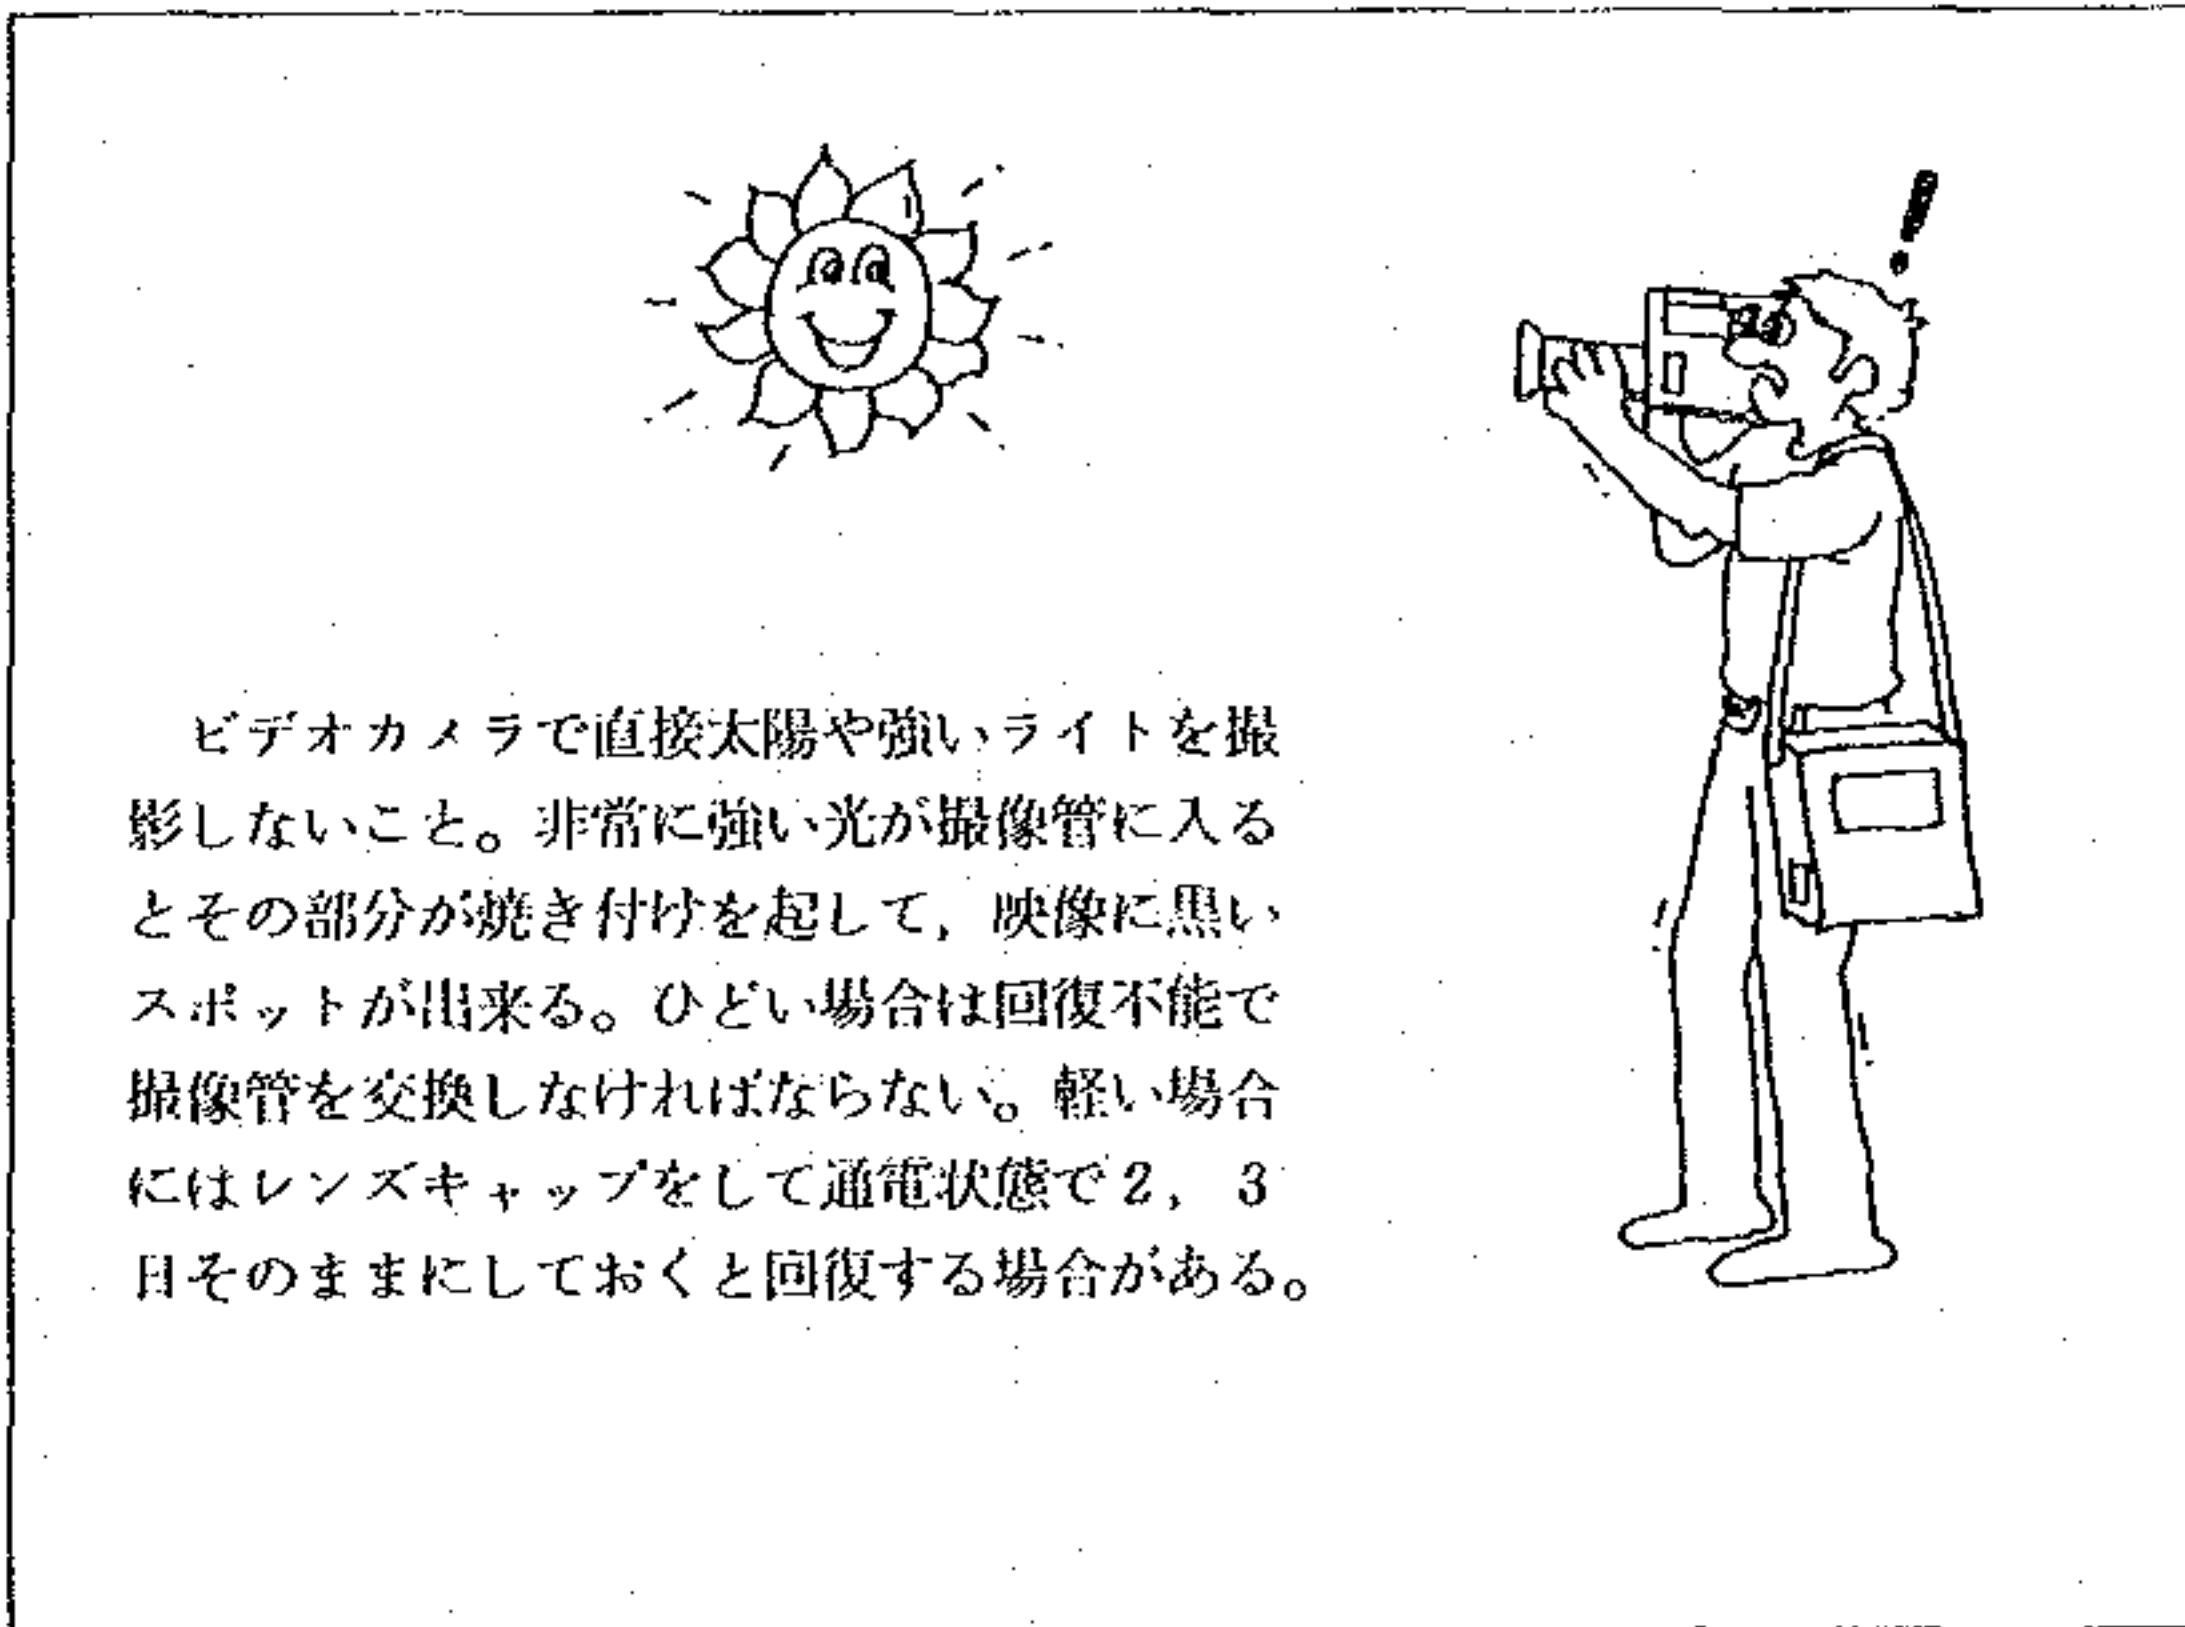 ビデオカメラで直接太陽や強いライトを撮
影しないこと。非常に強い光が撮像管に入る
とその部分が焼き付けを起して，映像に黒い
スポットが出来る。ひどい場合は回復不能で
撮像管を交換しなければならない。軽い場合
にはレンズキャップをして通電状態で2，3
日そのままにしておくと回復する場合がある。